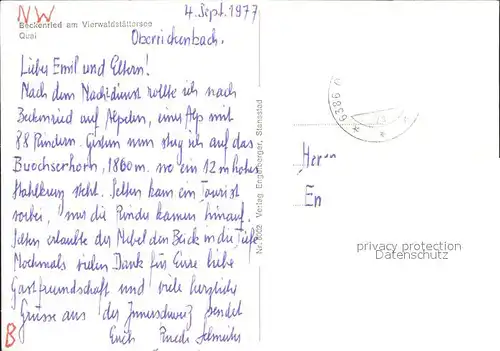 NW
4. Sept. 1977
Beckenried am Vierwaldstättersee
Quai
Oberrickenbach.
Liebe Emil und Eltern!
Nach dem Nachtdienst wollte ich nach
Beckenried auf Alpelen, einer Alp mit
88 Rindern. Gestern nun stieg ich auf das
Buochserhorn, 1860m. wo ein 12m hohes
Stahlkreuz steht. Selten kam ein Tourist
vorbei, nur die Rinder kamen hinauf.
Selten erlaubte der Nebel den Blick in die Tiefe
Nochmals vielen Dank für Eure liebe
Gastfreundschaft und viele herzliche
Grüsse aus der Innerschweiz sendet
Euch Ruedi
B
Verlag Engelberger, Stansstad
6383
Herrn
Em
privacy protection
Datenschutz